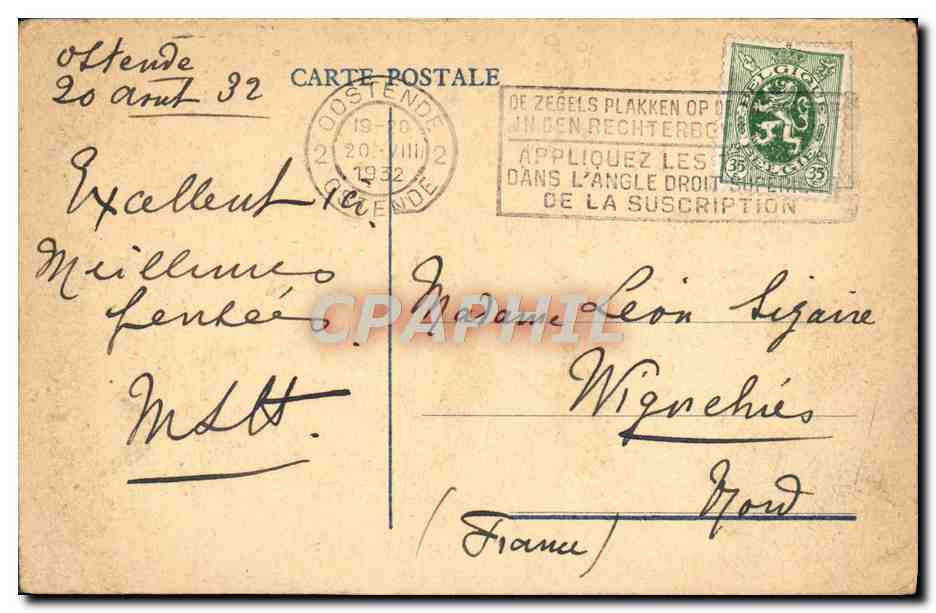 Ostende
20 août 32
CARTE POSTALE
OOSTENDE
2 19-20 2
20 VIII
1932
OSTENDE
DE ZEGELS PLAKKEN OP DE
IN DEN RECHTERBO
APPLIQUEZ LES
DANS L'ANGLE DROIT SUPERI
DE LA SUSCRIPTION
BELGIQUE
35 BELGIË 35
Excellent
Meilleures
pensées
CPAPHIL
Madame Léon Sigaire
Wignehies
Nord
(France)